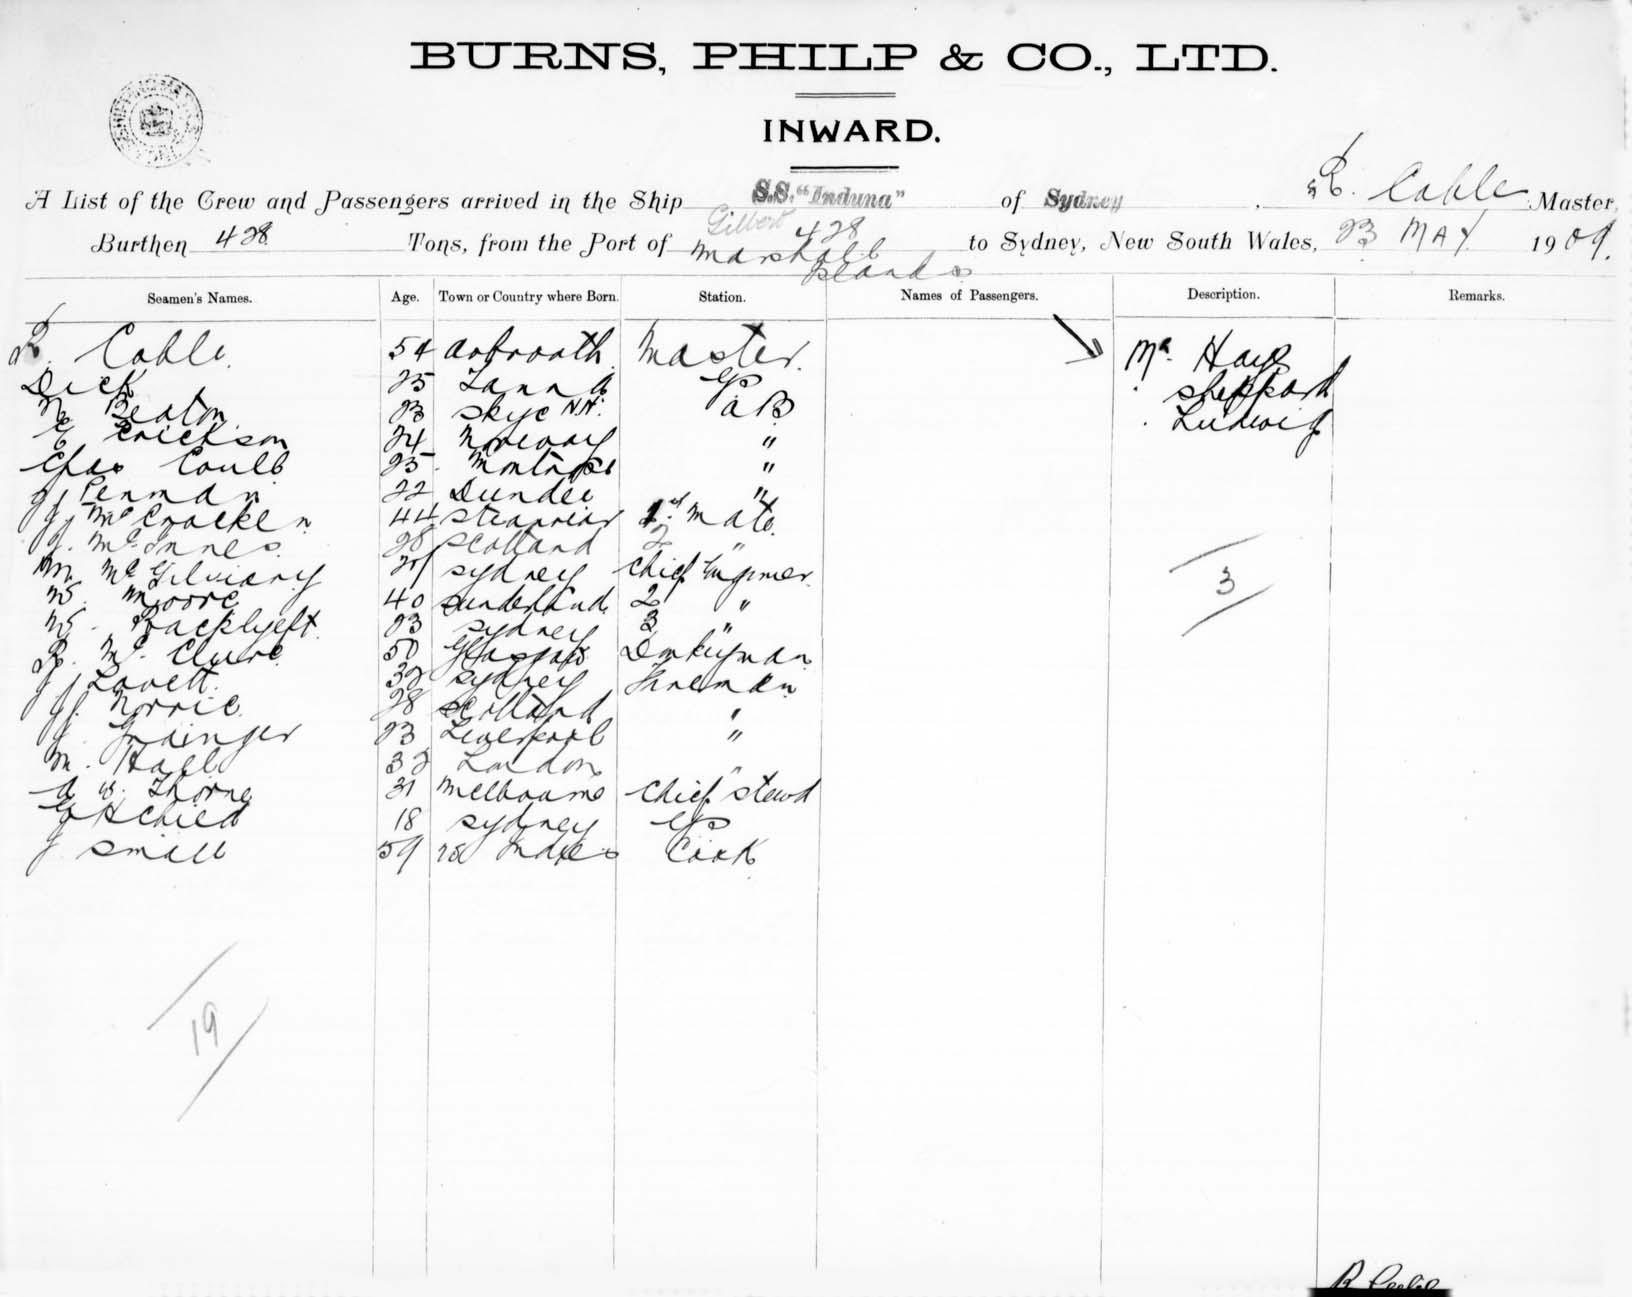 BURNS, PHILP & CO., LTD.
INWARD.
A List of the Crew and Passengers arrived in the Ship S.S. "Induna" of Sydney, R. Cable Master,
Burthen 428 Tons, from the Port of Gilbert 428 Marshall Islands to Sydney, New South Wales, 23 MAY 1909.
Seamen's Names. Age. Town or Country where Born. Station. Names of Passengers. Description. Remarks.
R. Cable. 54 Arbroath Master. Mr. Hays
Dick 25 Tanna Sheppard
N Beaton 23 Skye NH. AB Ludwig
E Erickson 24 Norway "
Chas Coull 25 Montrose "
J Penman 22 Dundee "
J McCracken 44 1st Mate
J. McInnes 28 Scotland 2 "
M McGilvray Sydney Chief Engineer
W. Moore 40 Sunderland 2 "
W. 23 Sydney 3 "
R. McClure 50 Glasgow Donkeyman
J Lovett 32 Sydney Fireman
J Norrie 28 Scotland "
J. Grainger 23 Liverpool "
M. Hall 32 London "
A W. Thorne 31 Melbourne Chief Stewd
G H Child 18 Sydney
J Small 59 W Indies Cook
3
19
R Cable